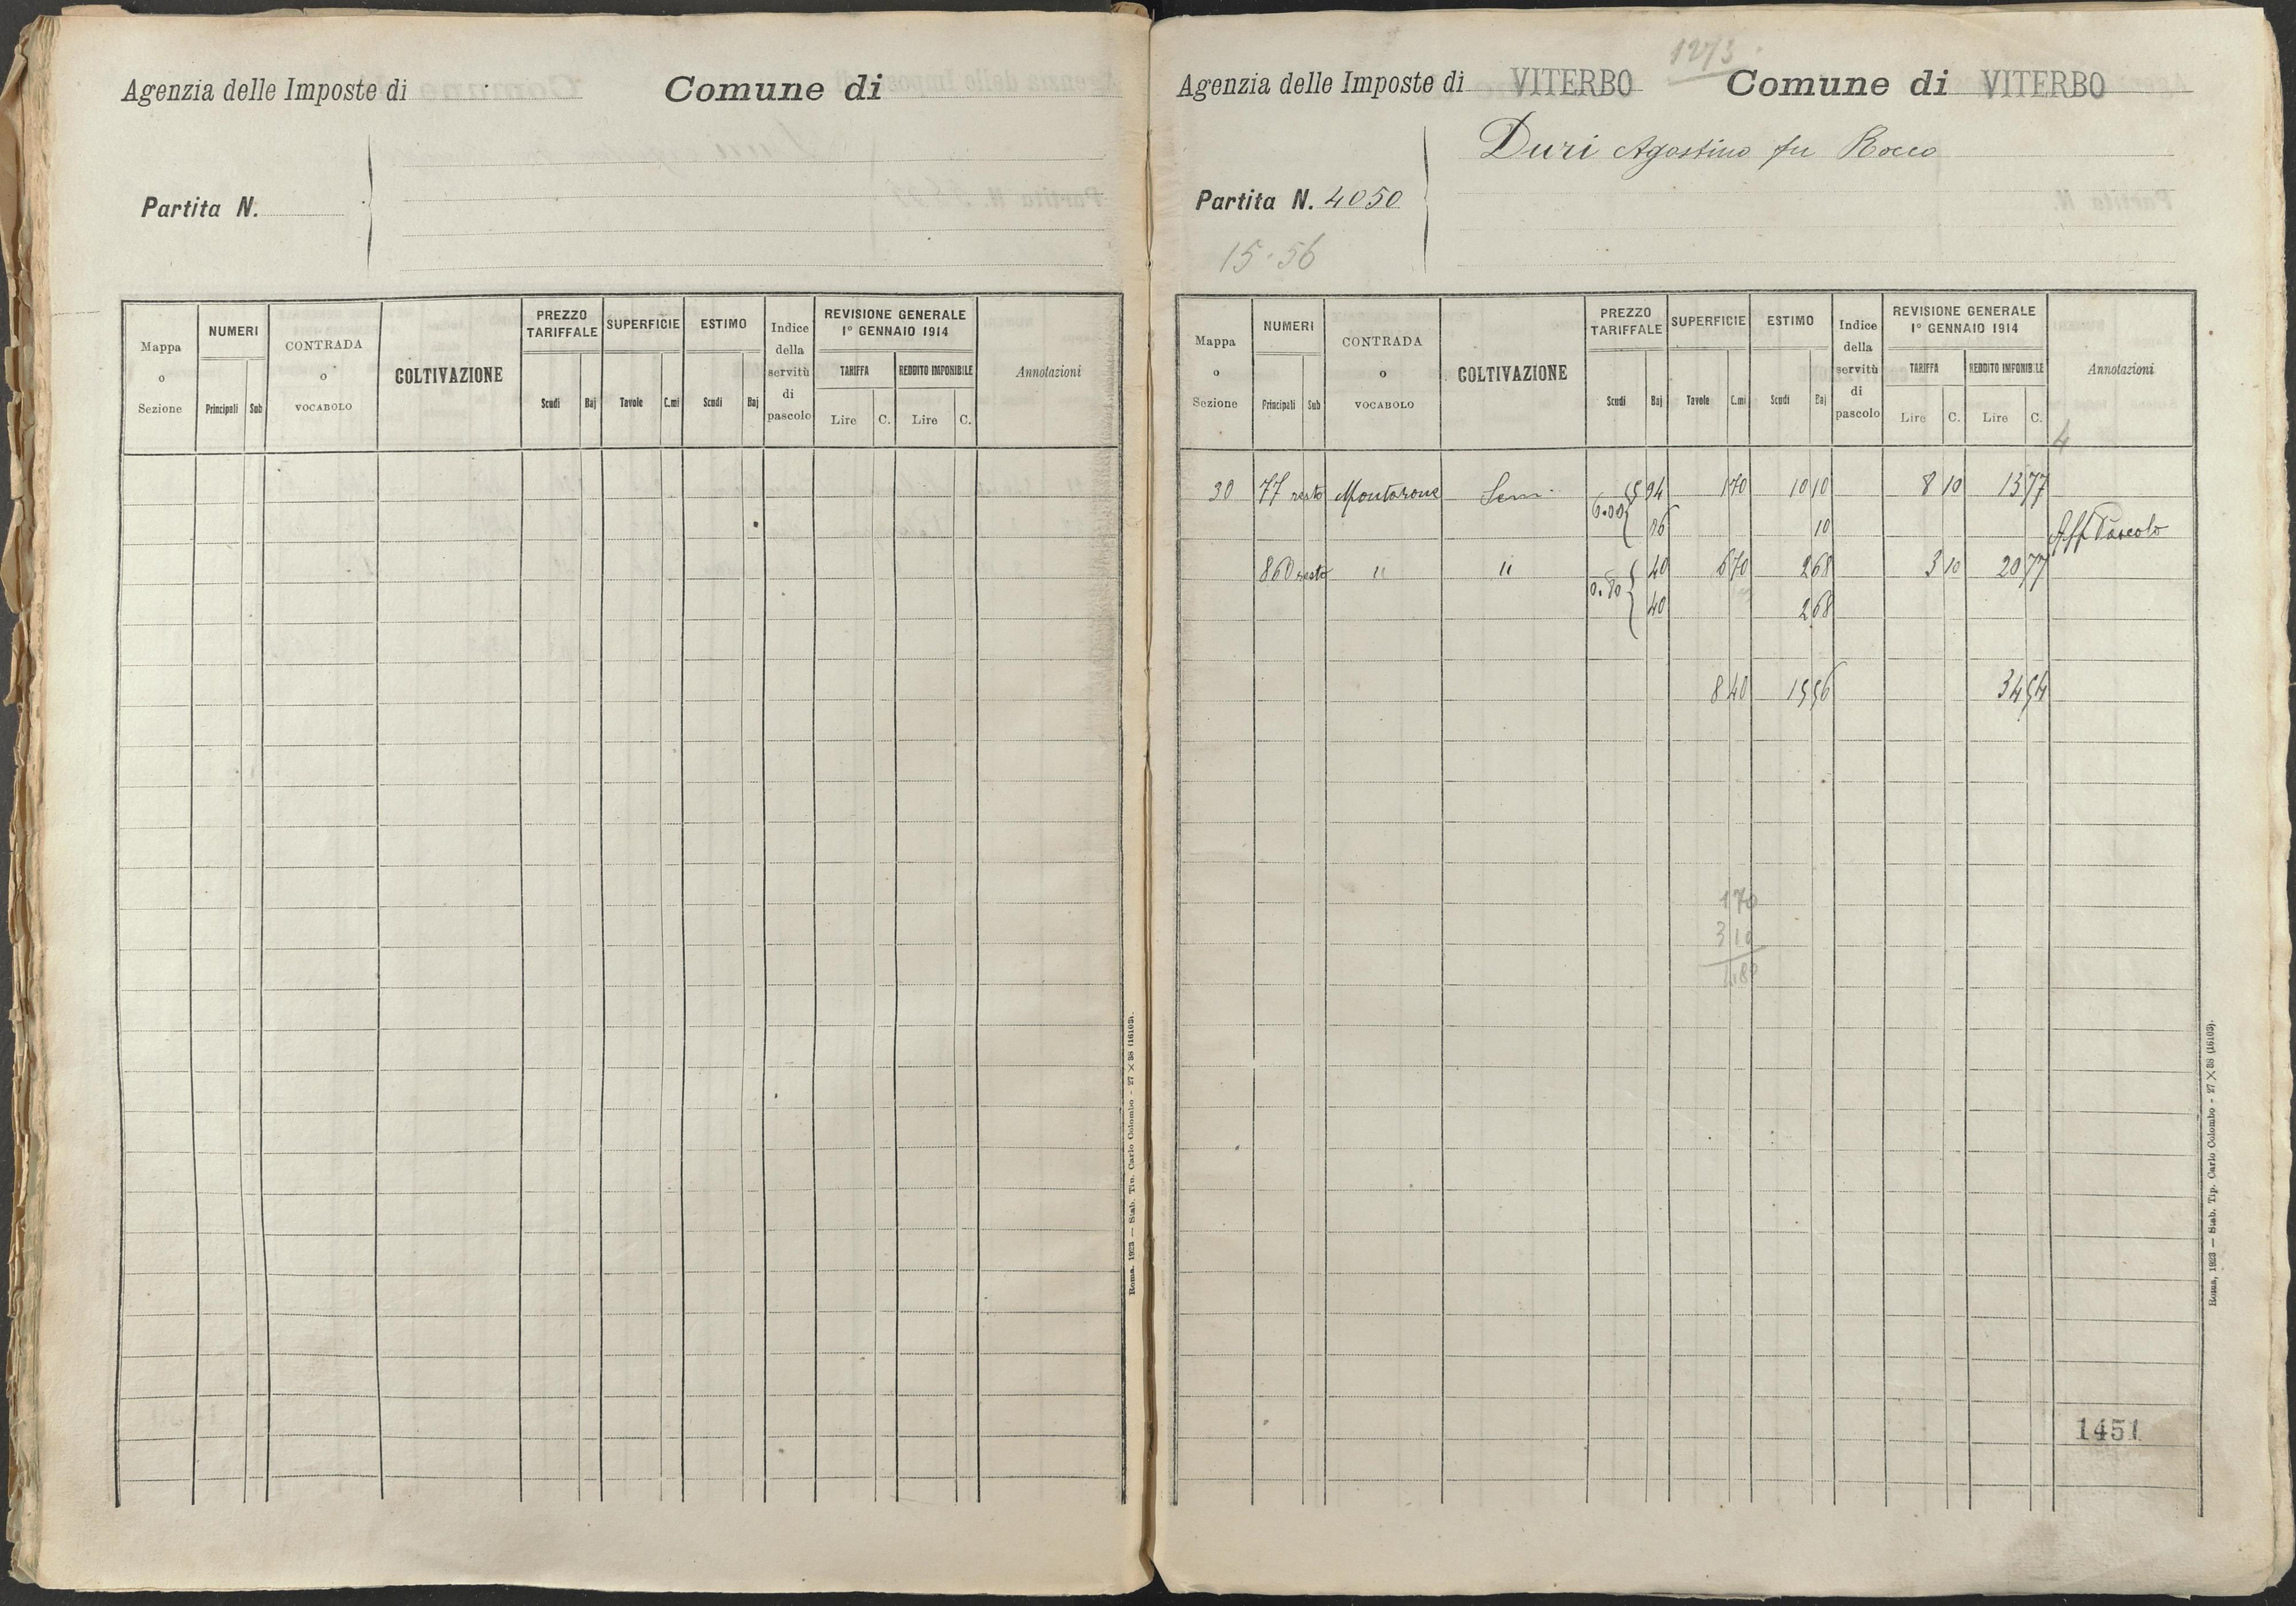 Agenzia delle Imposte di
Comune di
Partita N.
Mappa o Sezione
NUMERI
Principali
Sub
CONTRADA o VOCABOLO
COLTIVAZIONE
PREZZO TARIFFALE
Scudi
Baj
SUPERFICIE
Tavole
C.mi
ESTIMO
Scudi
Baj
Indice della servitù di pascolo
REVISIONE GENERALE
1º GENNAIO 1914
TARIFFA
REDDITO IMPONIBILE
Lire
C.
Lire
C.
Annotazioni
Roma. 1923 — Stab. Tip. Carlo Colombo - 27 × 38 (16103).
1273
Agenzia delle Imposte di VITERBO Comune di VITERBO
Duri Agostino fu Rocco
Partita N. 4050
15.56
Mappa o Sezione
NUMERI
Principali
Sub
CONTRADA o VOCABOLO
COLTIVAZIONE
PREZZO TARIFFALE
Scudi
Baj
SUPERFICIE
Tavole
C.mi
ESTIMO
Scudi
Baj
Indice della servitù di pascolo
REVISIONE GENERALE
1º GENNAIO 1914
TARIFFA
REDDITO IMPONIBILE
Lire
C.
Lire
C.
Annotazioni
4
30 77 resto Montarone Sem. 5 94 1 70 10 10 8 10 13 77
6.00 06 10 Aff Pascolo
860 resto " " 40 6 70 2 68 3 10 20 77
0.80 40 2 68
8 40 15 56 34 54
1 70
3 10
1451
Roma, 1923 — Stab. Tip. Carlo Colombo - 27 × 38 (16103).